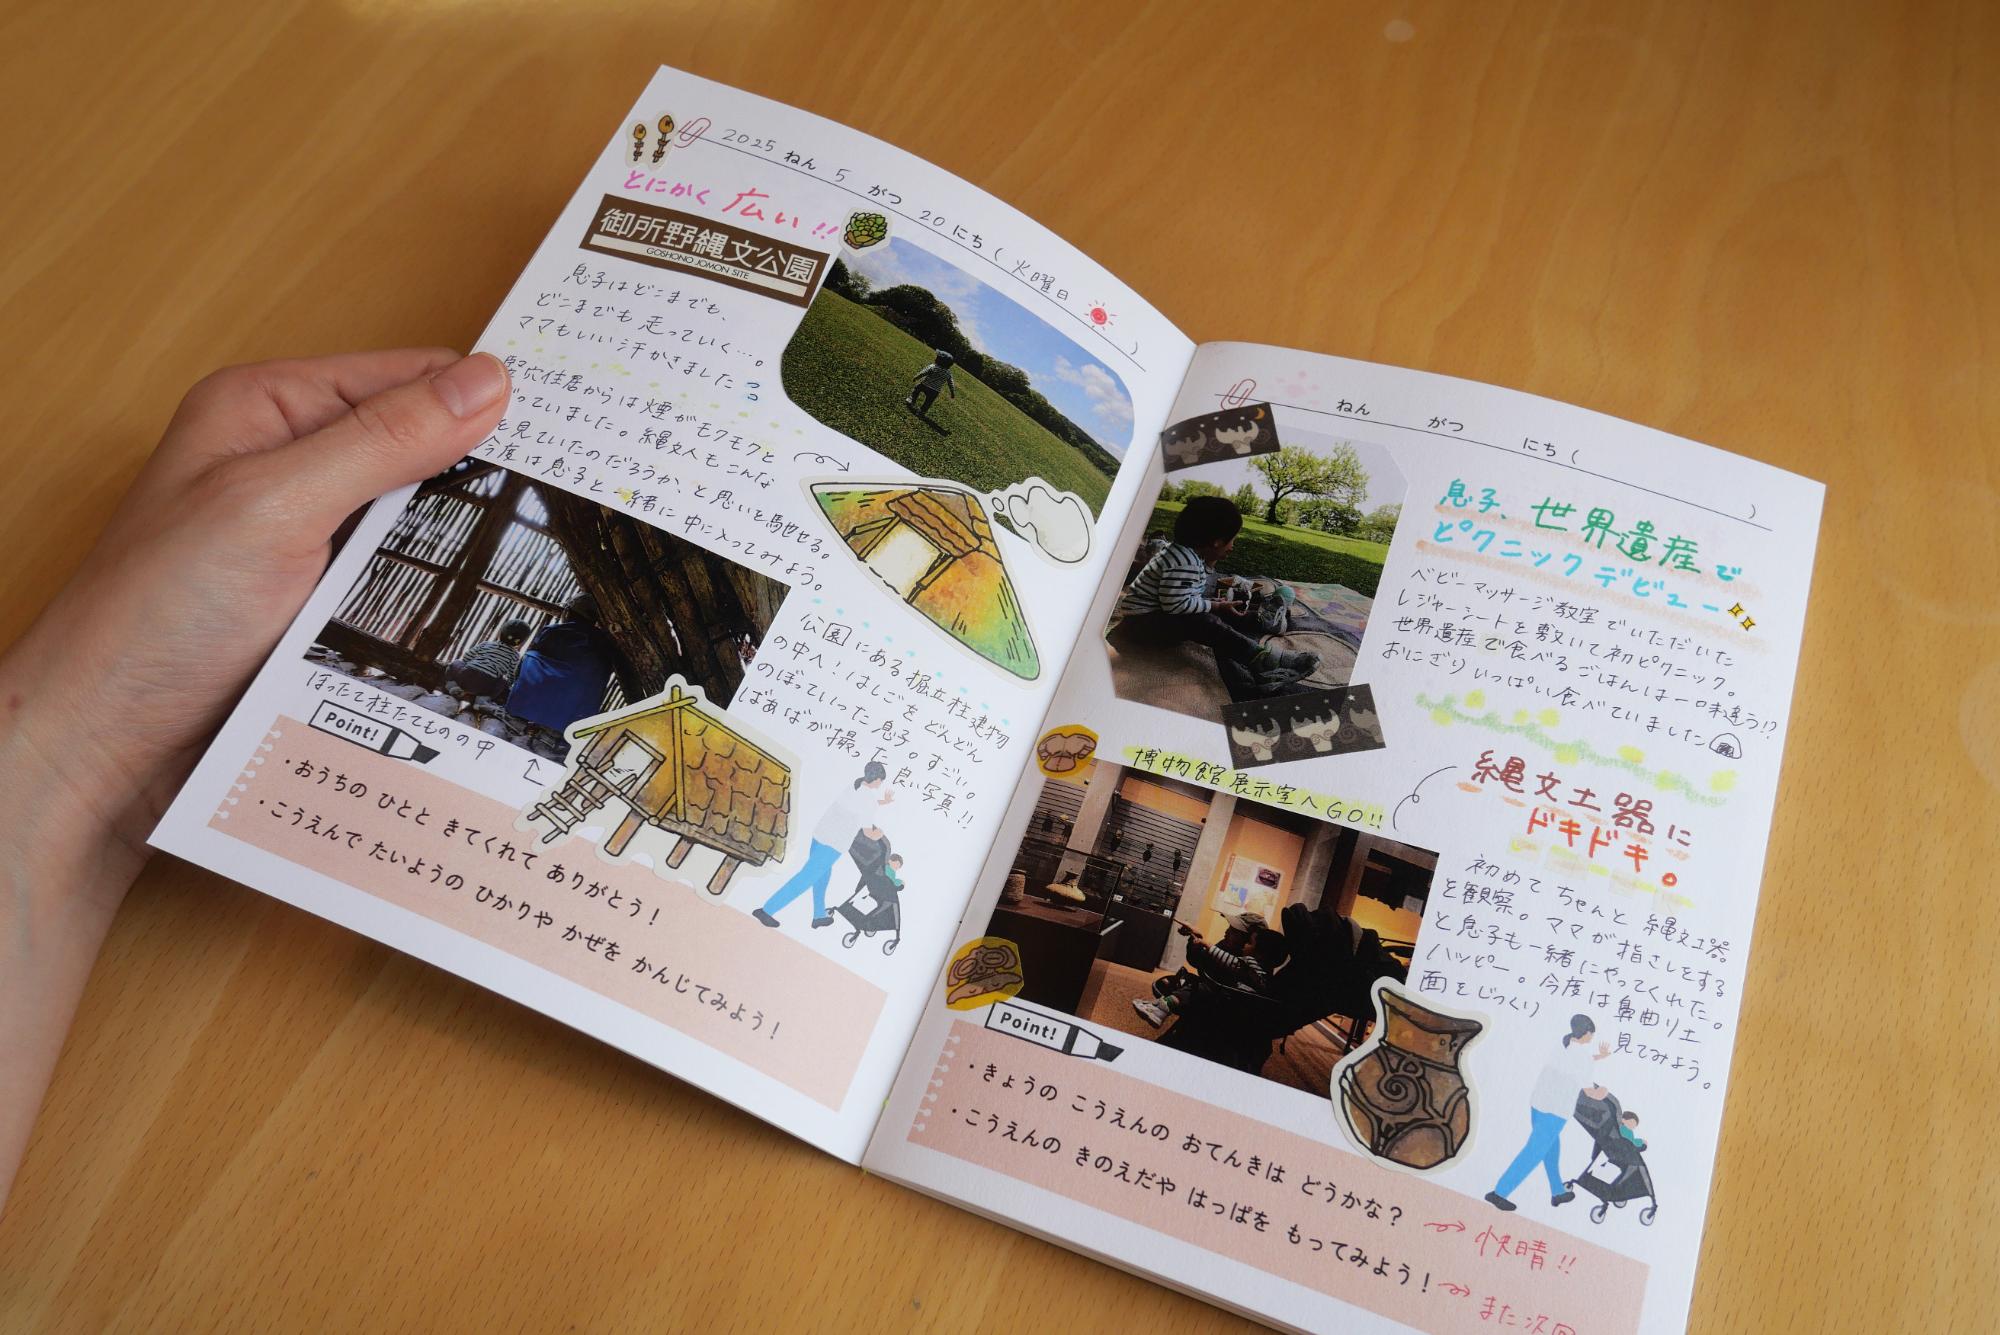 2025 ねん 5 がつ 20 にち ( 火曜日 )
とにかく 広い!!
御所野縄文公園
GOSHONO JOMON SITE
息子はどこまでも、
どこまでも走っていく…。
ママもいい汗かきました
竪穴住居からは煙がモクモクと
っていました。縄文人もこんな
を見ていたのだろうか、と思いを馳せる。
今度は息子と一緒に中に入ってみよう。
公園にある掘立柱建物
の中へ!はしごをどんどん
のぼっていった息子。すごい。
ばあばが撮った良い写真!!
ほったて柱たてものの中
Point!
・おうちの ひとと きてくれて ありがとう!
・こうえんで たいようの ひかりや かぜを かんじてみよう!
ねん がつ にち ( )
息子、世界遺産で
ピクニックデビュー
ベビーマッサージ教室でいただいた
レジャーシートを敷いて初ピクニック。
世界遺産で食べるごはんは一味違う!?
おにぎりいっぱい食べていました
博物館展示室へGO!!
縄文土器に
ドキドキ。
初めてちゃんと縄文土器
を観察。ママが指さしをする
と息子も一緒にやってくれた。
ハッピー。今度は鼻曲り土
面をじっくり
見てみよう。
Point!
・きょうの こうえんの おてんきは どうかな? 快晴!!
・こうえんの きのえだや はっぱを もってみよう! また次回